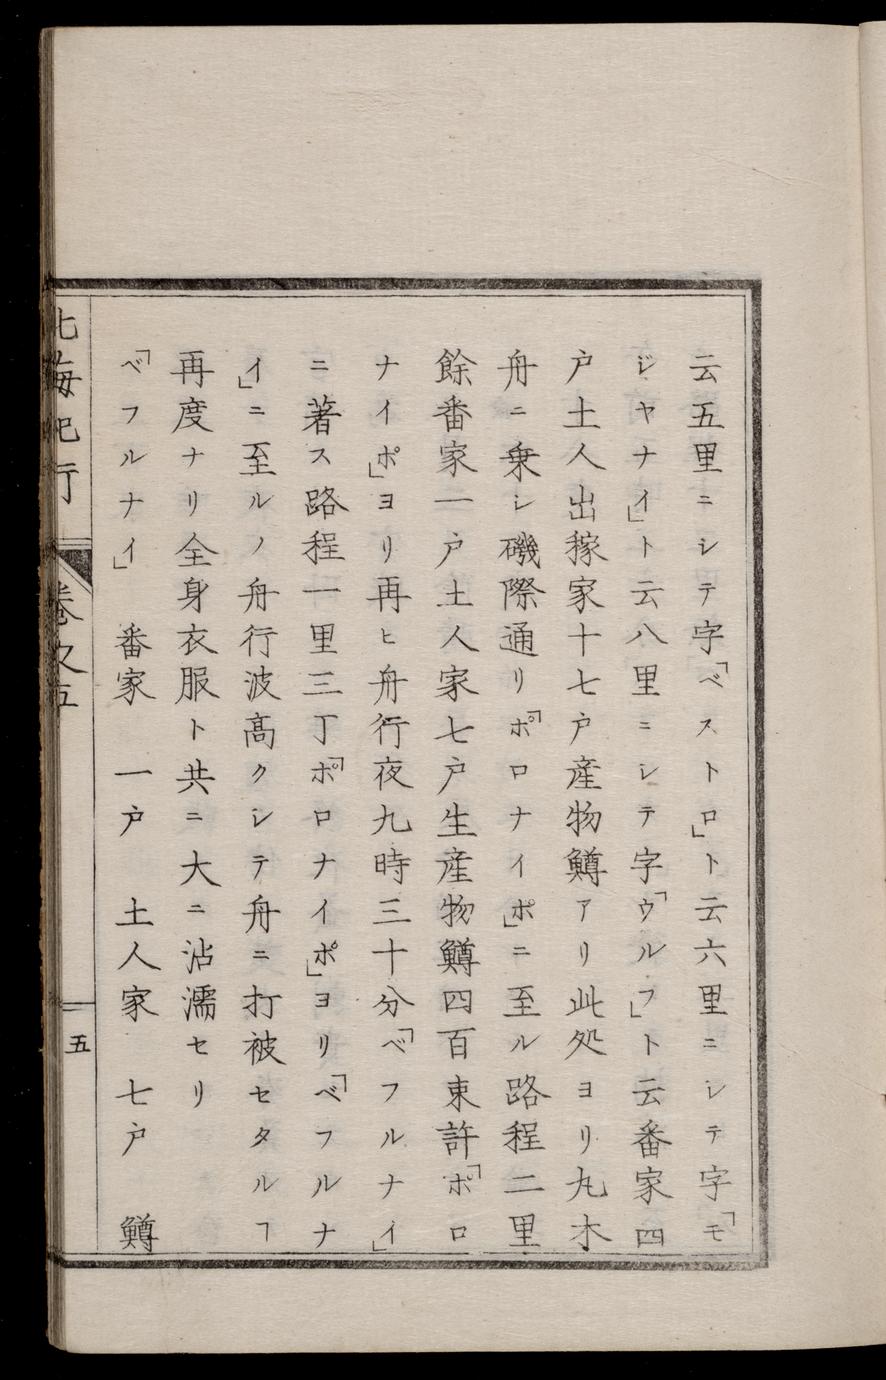 云五里ニシテ字「ベストロ」ト云六里ニシテ字「モ
ジヤナイ」ト云八里ニシテ字「ウルフ」ト云番家四
戸土人出稼家十七戸産物鱒アリ此処ヨリ丸木
舟ニ乗シ磯際通リ「ポロナイポ」ニ至ル路程二里
餘番家一戸土人家七戸生産物鱒四百束許「ポロ
ナイポ」ヨリ再ヒ舟行夜九時三十分「ベフルナイ」
ニ著ス路程一里三丁「ポロナイポ」ヨリ「ベフルナ
イ」ニ至ルノ舟行波髙クシテ舟ニ打被セタルヿ
再度ナリ全身衣服ト共ニ大ニ沾濡セリ
「ベフルナイ」　番家　一戸　土人家　七戸　鱒
北海紀行　卷之五　五